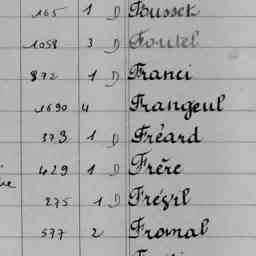 165 1 D Fussek
1058 3 D Foutel
872 1 D Franci
1690 4 Frangeul
373 1 D Fréard
429 1 D Frère
275 1 D Frégil
577 2 Fromal